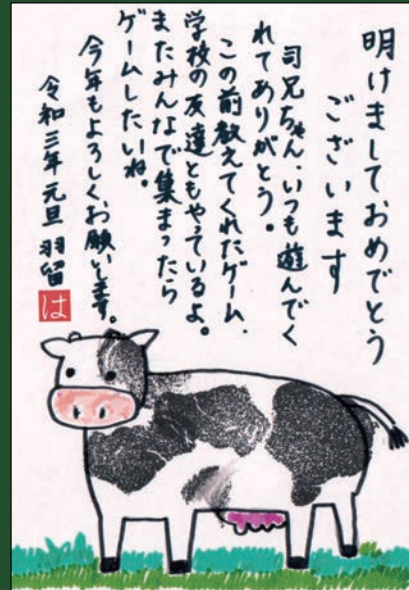 明けましておめでとう
ございます
司兄ちゃん、いつも遊んでく
れてありがとう。
この前教えてくれたゲーム、
学校の友達ともやっているよ。
またみんなで集まったら
ゲームしたいね。
今年もよろしくお願いします。
令和三年元旦 羽留
は